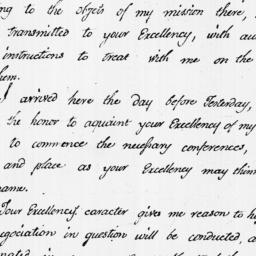 ng to the objets of my mission there,
transmitted to your Excellency, with au
instructions to treat with me on the
hem.
I arrived here the day before Yesterday,
the honor to acquaint your Excellency of my
to commence the necessary conferences,
and place as your Excellency may thin
name.
Your Excellency's caracter gives me reason to ho
egociation in question will be conducted, a